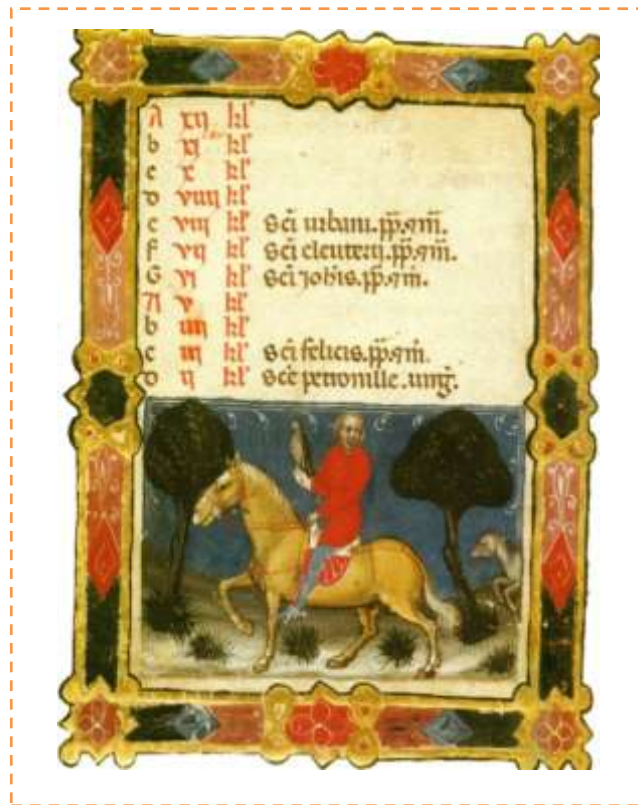 A xij kl'
b xj kl'
c x kl'
d viiij kl'
e viij kl' Sci urbani. pp. 7 m̄.
f vij kl' Sci eleuterij. pp. 7 m̄.
G vj kl' Sci Johis. pp. 7 m̄.
A v kl'
b iiij kl'
c iij kl' Sci felicis. pp. 7 m̄.
d ij kl' Sce petronille. uirg̃.